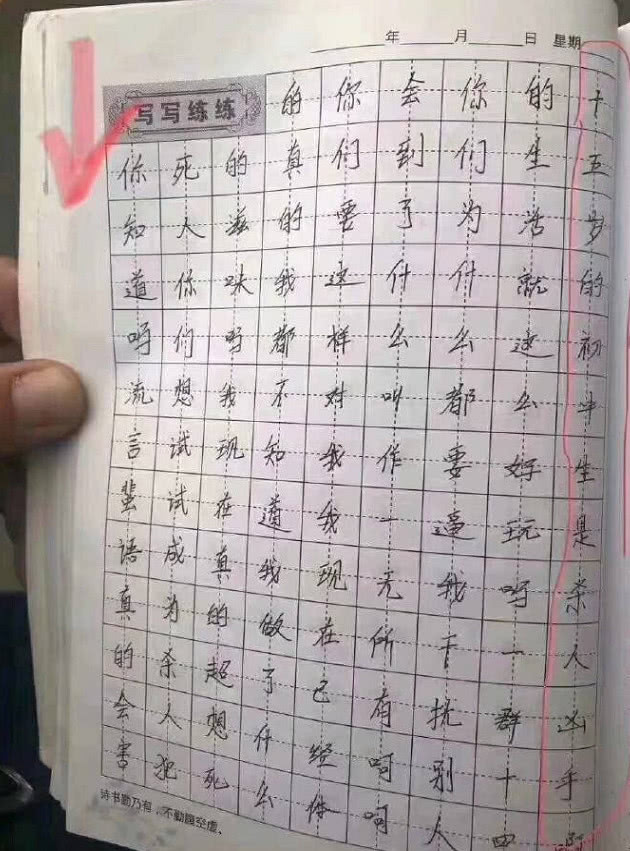 年 月 日 星期
写写练练
你知道吗流言蜚语真的会害
死人你们想试试成为杀人犯
的滋味吗我现在真的超想死
的真的我都不知道我做了什么
你们要这样对我我现在已经体
会到了什么叫作一无所有呵呵
你们为什么都要逼我干扰别人
的生活就这么好玩吗一群十四
十五岁的初中生是杀人凶手
诗书勤乃有，不勤腹空虚。